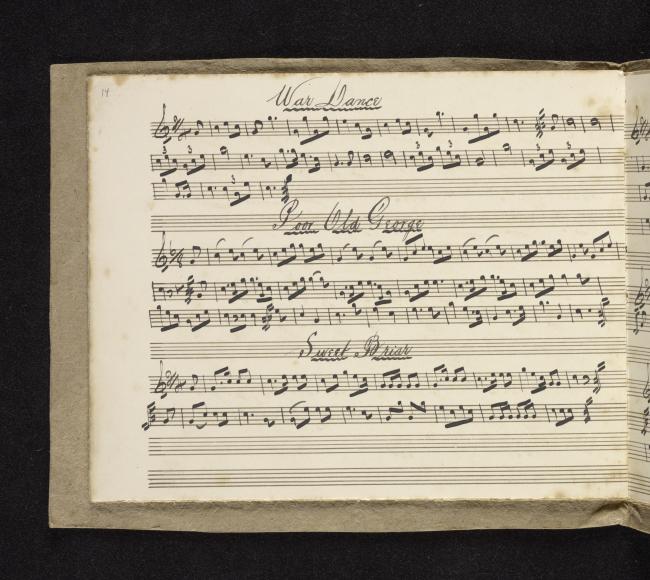 14
War Dance
3 3
3 3 3 3
3
Poor Old George
Sweet Briar